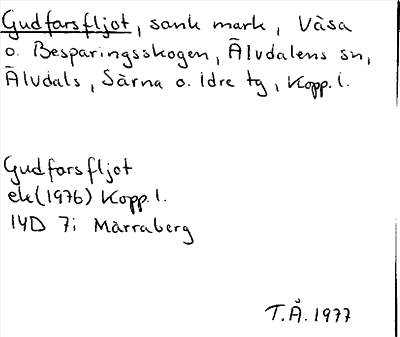 Gudfarsfljot, sank mark, Våsa
o. Besparingsskogen, Älvdalens sn,
Älvdals, Särna o. Idre tg, Kopp. l.
Gudfarsfljot
ek (1976) Kopp. l.
14D 7i Märraberg
T.Å. 1977